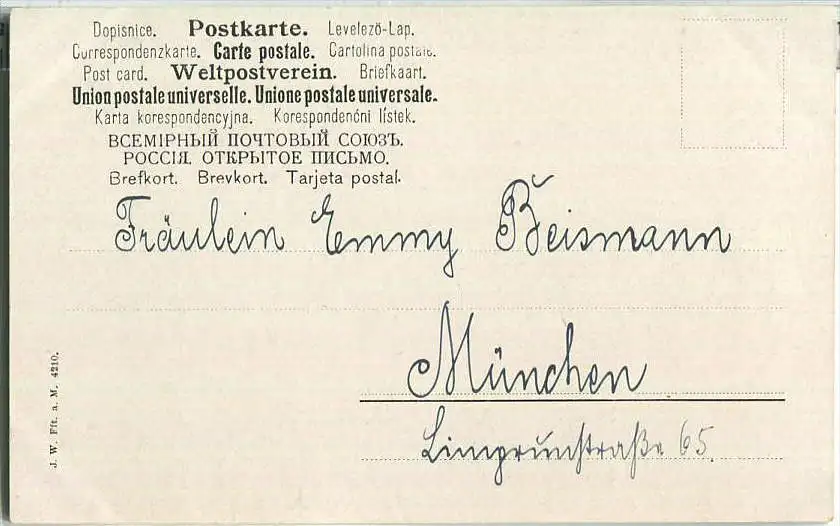 Dopisnice. Postkarte. Levelező-Lap.
Correspondenzkarte. Carte postale. Cartolina postale.
Post card. Weltpostverein. Briefkaart.
Union postale universelle. Unione postale universale.
Karta korespondencyjna. Korespondenční lístek.
ВСЕМІРНЫЙ ПОЧТОВЫЙ СОЮЗЪ.
РОССІЯ. ОТКРЫТОЕ ПИСЬМО.
Brefkort. Brevkort. Tarjeta postal.
Fräulein Emmy Beismann
München
Limprunstraße 65.
J. W. Fft. a. M. 4210.